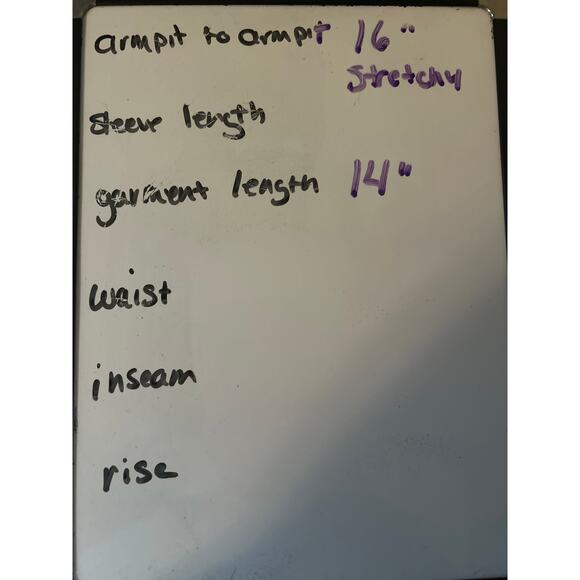 armpit to armpit 16"
stretchy
sleeve length
garment length 14"
waist
inseam
rise